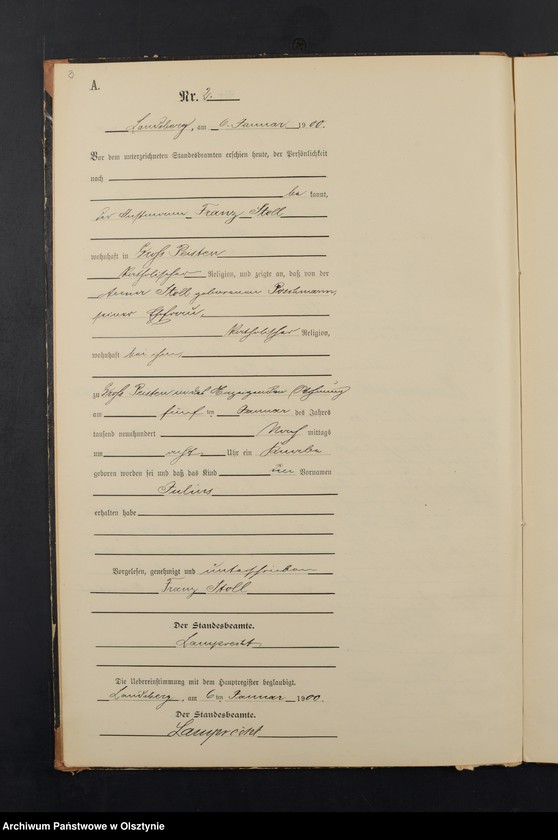 A.
Nr. 2.
Landsberg, am 6. Januar 1900.
Vor dem unterzeichneten Standesbeamten erschien heute, der Persönlichkeit
nach
be kannt,
der Franz Stoll
wohnhaft in Groß Peisten
katholischer Religion, und zeigte an, daß von der
Anna Stoll geborenen Poschmann,
seiner Ehefrau,
katholischer Religion,
wohnhaft bei ihm,
zu Groß Peisten in des Wohnung
am fünf ten Januar des Jahres
tausend neunhundert Nach mittags
um acht Uhr ein Knabe
geboren worden sei und daß das Kind den Vornamen
Julius
erhalten habe
Vorgelesen, genehmigt und unterschrieben
Franz Stoll
Der Standesbeamte.
Lamprecht
Die Uebereinstimmung mit dem Hauptregister beglaubigt.
Landsberg, am 6 ten Januar 1900.
Der Standesbeamte.
Lamprecht
Archiwum Państwowe w Olsztynie